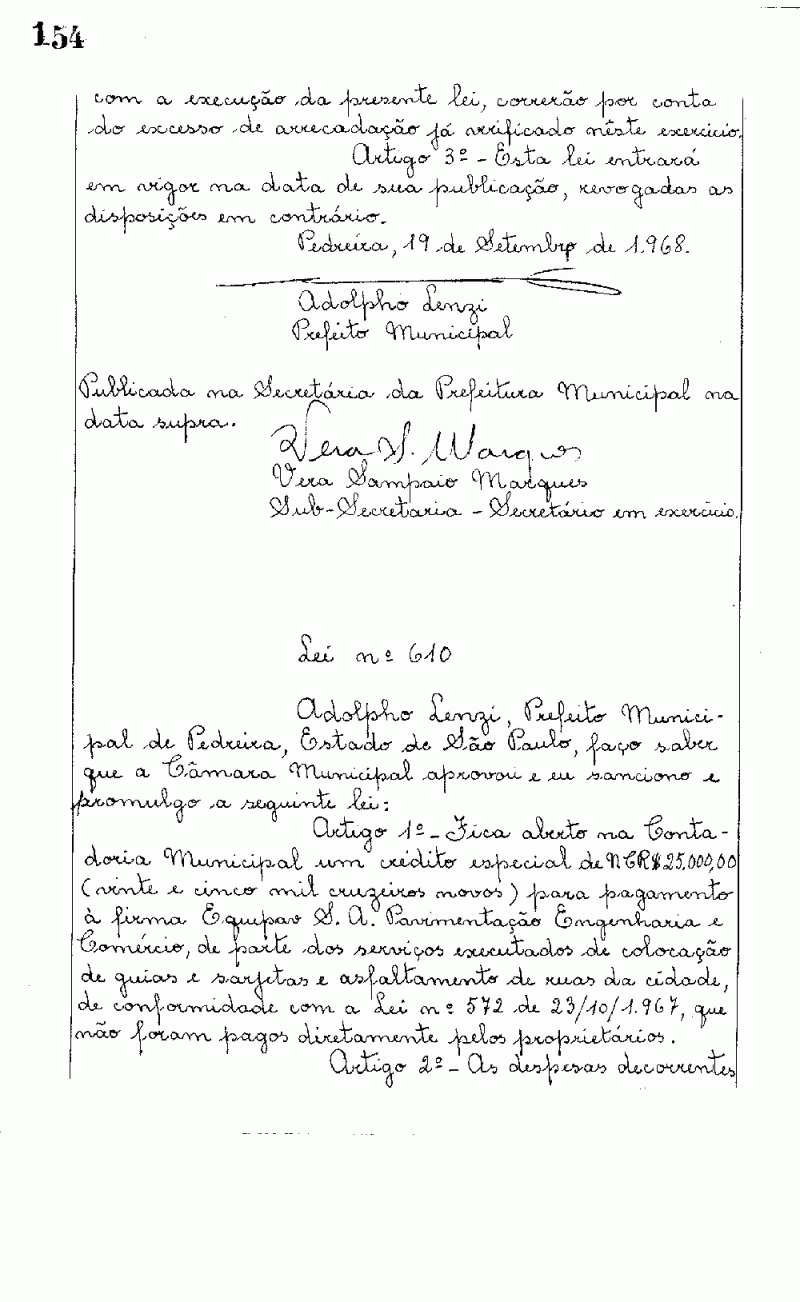 154
com a execução da presente lei, correrão por conta
do excesso de arrecadação já verificado nêste exercicio.
Artigo 3º - Esta lei entrará
em vigor na data de sua publicação, revogadas as
disposições em contrário.
Pedreira, 19 de Setembro de 1.968.
Adolpho Lenzi
Prefeito Municipal
Publicada na Secretária da Prefeitura Municipal na
data supra.
Vera S. Marques
Vera Sampaio Marques
Sub-Secretaria - Secretário em exercicio.
Lei nº 610
Adolpho Lenzi, Prefeito Munici-
pal de Pedreira, Estado de São Paulo, faço saber
que a Câmara Municipal aprovou e eu sanciono e
promulgo a seguinte lei:
Artigo 1º - Fica aberto na Conta-
doria Municipal um crédito especial de NCR$25.000,00
(vinte e cinco mil cruzeiros novos) para pagamento
à firma Equipav S. A. Pavimentação Engenharia e
Comércio, de parte dos serviços executados de colocação
de guias e sarjetas e asfaltamento de ruas da cidade,
de conformidade com a Lei nº 572 de 23/10/1.967, que
não foram pagos diretamente pelos proprietários.
Artigo 2º - As despesas decorrentes